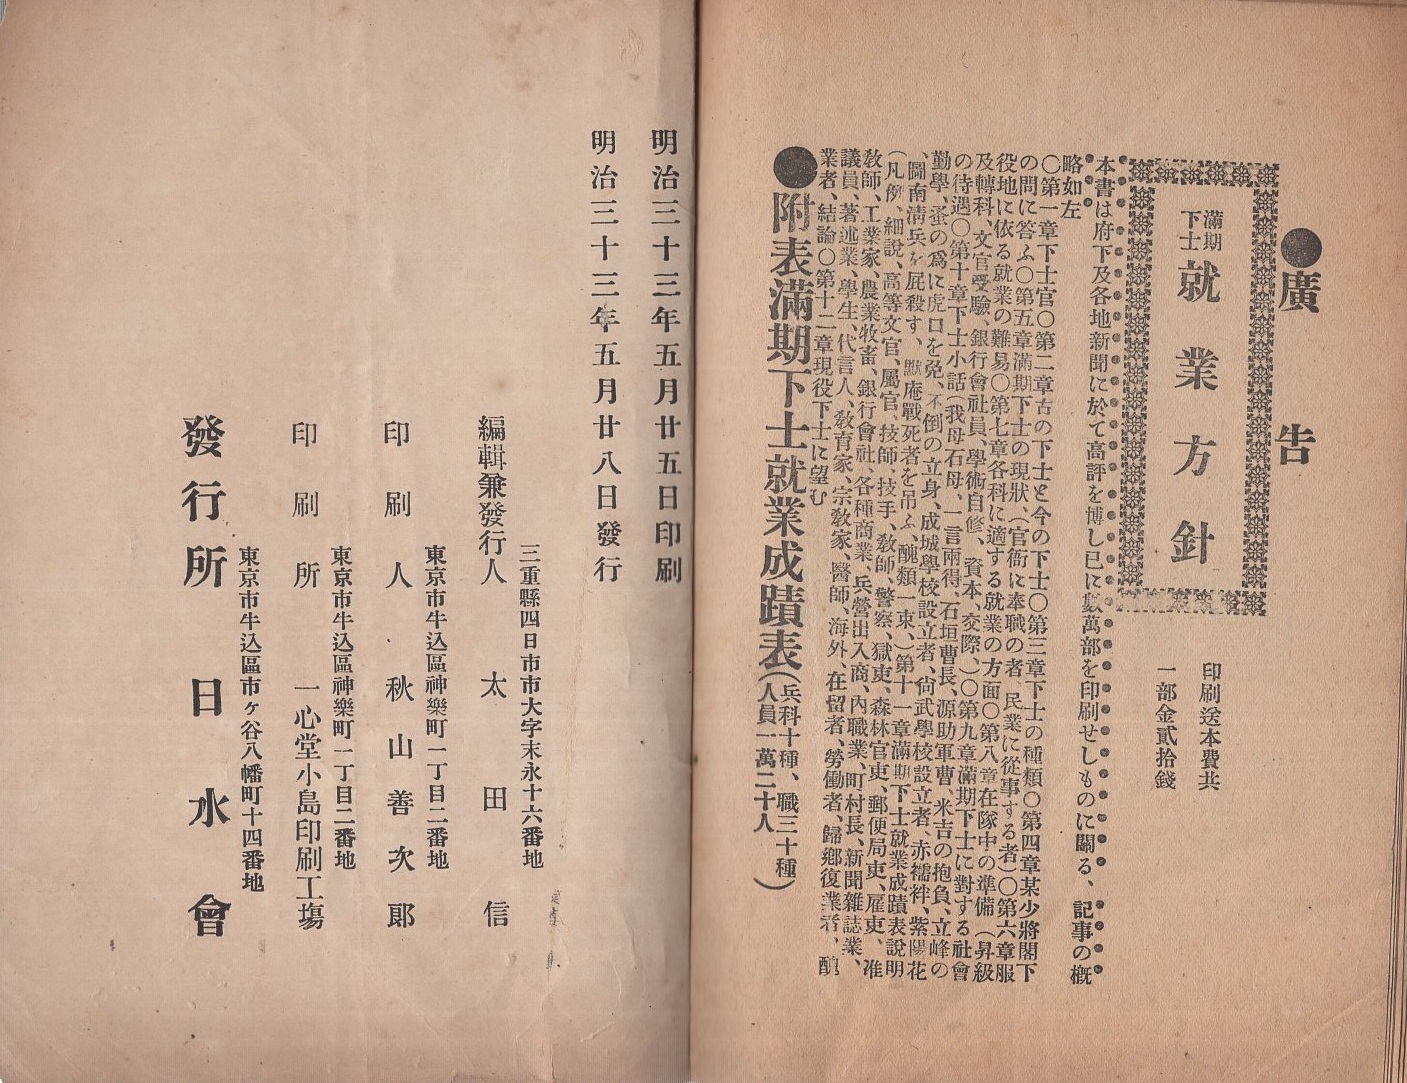 ●廣告
滿期下士 就業方針
印刷送本費共
一部金貳拾錢
本書は府下及各地新聞に於て高評を博し已に數萬部を印刷せしものに關る、記事の槪
略如左
〇第一章下士官〇第二章古の下士と今の下士〇第三章下士の種類〇第四章某少將閣下
の問に答ふ〇第五章滿期下士の現狀、(官衙に奉職の者、民業に從事する者)〇第六章服
役地に依る就業の難易〇第七章各科に適する就業の方面〇第八章在隊中の準備(昇級
及轉科、文官受驗、銀行會社員、學術自修、資本、交際、)〇第九章滿期下士に對する社會
の待遇〇第十章下士小話(我母石母、一言兩得、石垣曹長、源助軍曹、米吉の抱負、立峰の
勤學、蚤の爲に虎口を免、不倒の立身、成城學校設立者、尙武學校設立者、赤襦袢、紫陽花
、圖南淸兵を屁殺す、默庵戰死者を吊ふ、醜類一束、)第十一章滿期下士就業成蹟表說明
(凡例、細說、高等文官、屬官、技師、技手、敎師、警察、獄吏、森林官吏、郵便局吏、雇吏、准
敎師、工業家、農業牧畜、銀行會社、各種商業、兵營出入商、內職業、町村長、新聞雜誌業、
議員、著述業、學生、代言人、敎育家、宗敎家、醫師、海外、在留者、勞働者、歸鄕復業者、醜
業者、結論〇第十二章現役下士に望む
●附表滿期下士就業成蹟表(兵科十種、職三十種、人員一萬二十人)
明治三十三年五月廿五日印刷
明治三十三年五月廿八日發行
三重縣四日市市大字末永十六番地
編輯兼發行人 太田信
東京市牛込區神樂町一丁目二番地
印刷人 秋山善次郞
東京市牛込區神樂町一丁目二番地
印刷所 一心堂小島印刷工塲
東京市牛込區市ヶ谷八幡町十四番地
發行所 日水會